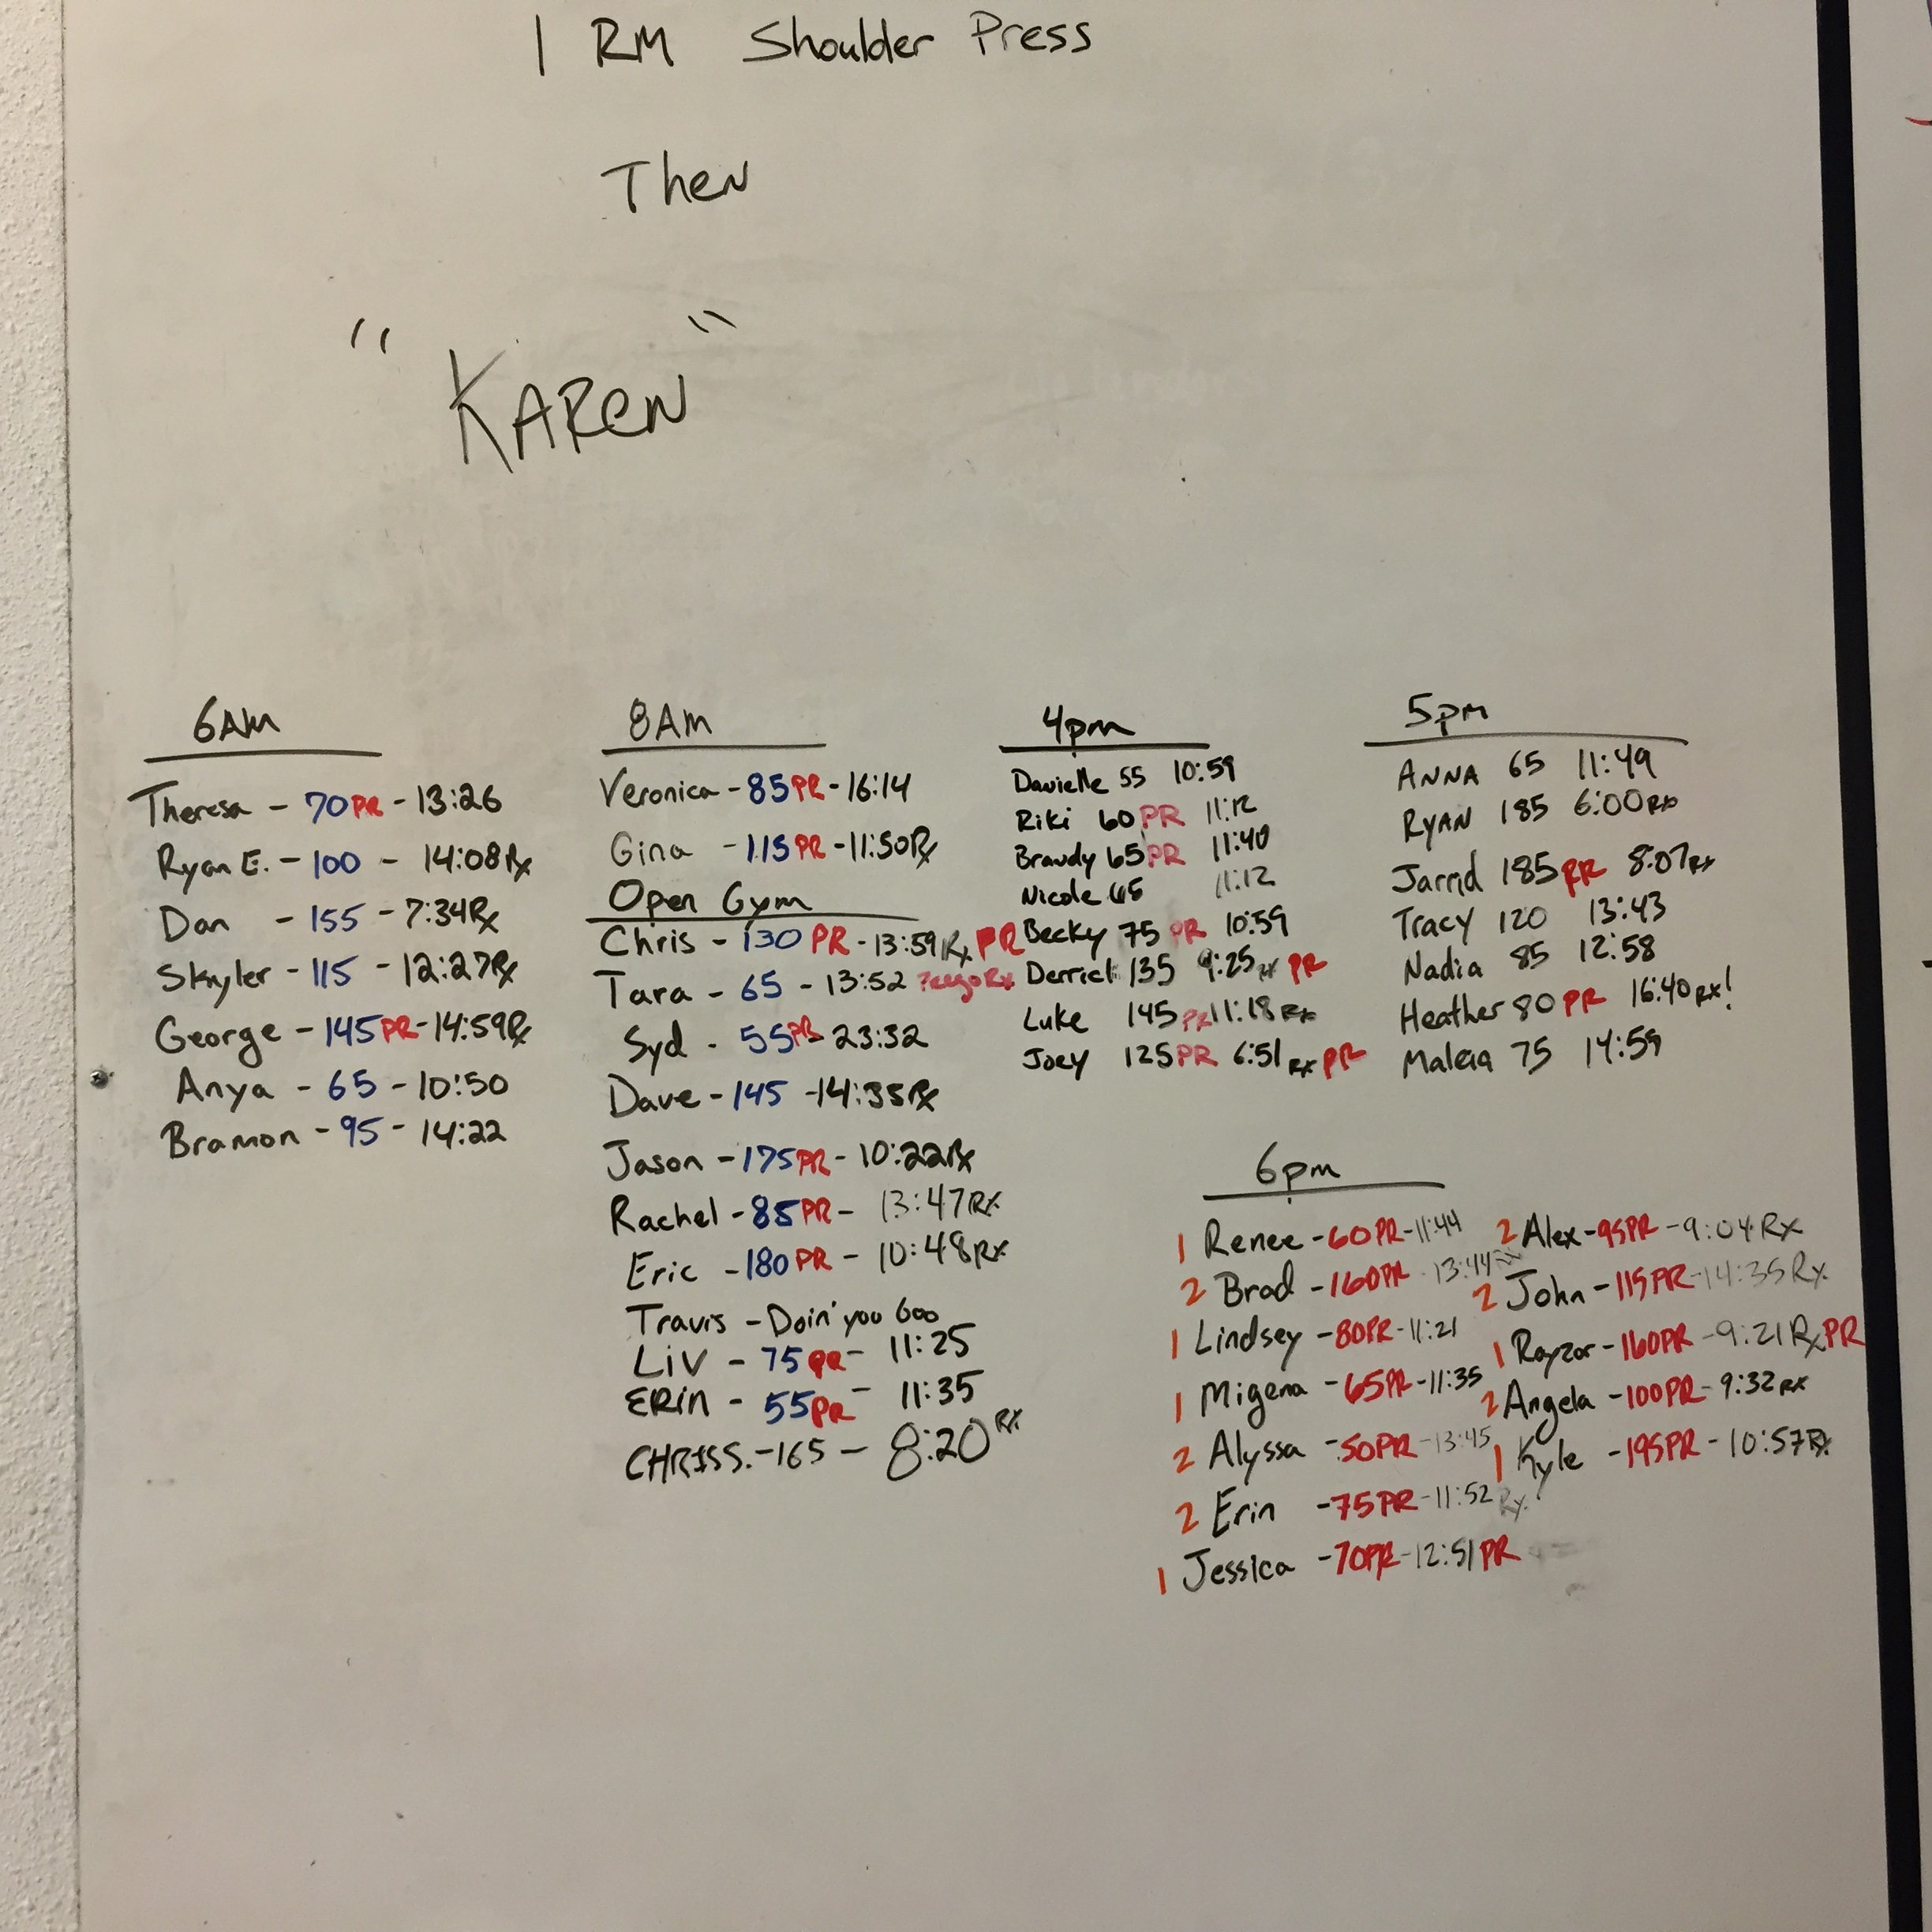 1 RM Shoulder Press
Then
"KAREN"
6AM
Theresa - 70PR - 13:26
Ryan E. - 100 - 14:08Rx
Dan - 155 - 7:34Rx
Skyler - 115 - 12:27Rx
George - 145PR - 14:59Rx
Anya - 65 - 10:50
Bramon - 95 - 14:22
8AM
Veronica - 85PR - 16:14
Gina - 115PR - 11:50Rx
Open Gym
Chris - 130 PR - 13:59Rx PR
Tara - 65 - 13:52
Syd - 55PR - 23:32
Dave - 145 - 14:35Rx
Jason - 175PR - 10:22Rx
Rachel - 85PR - 13:47Rx
Eric - 180PR - 10:48Rx
Travis - Doin' you Goo
Liv - 75PR - 11:25
ERIN - 55PR - 11:35
CHRIS S. - 165 - 8:20 Rx
4pm
Danielle 55 10:59
Riki 60PR 11:12
Brandy 65PR 11:40
Nicole 65 11:12
Becky 75 PR 10:59
Derrick 135 9:25Rx PR
Luke 145PR 11:18Rx
Joey 125PR 6:51Rx PR
5pm
ANNA 65 11:49
RYAN 185 6:00Rx
Jarrid 185PR 8:07Rx
Tracy 120 13:43
Nadia 85 12:58
Heather 80PR 16:40Rx!
Malena 75 14:59
6pm
1 Renee - 60PR - 11:44
2 Brad - 160PR - 13:44Rx
1 Lindsey - 80PR - 11:21
1 Migena - 65PR - 11:35
2 Alyssa - 50PR - 13:45
2 Erin - 75PR - 11:52 Rx!
1 Jessica - 70PR - 12:51 PR
2 Alex - 95PR - 9:04Rx
2 John - 115PR - 14:35Rx
1 Rayzor - 160PR - 9:21Rx PR
2 Angela - 100PR - 9:32Rx
1 Kyle - 195PR - 10:57Rx